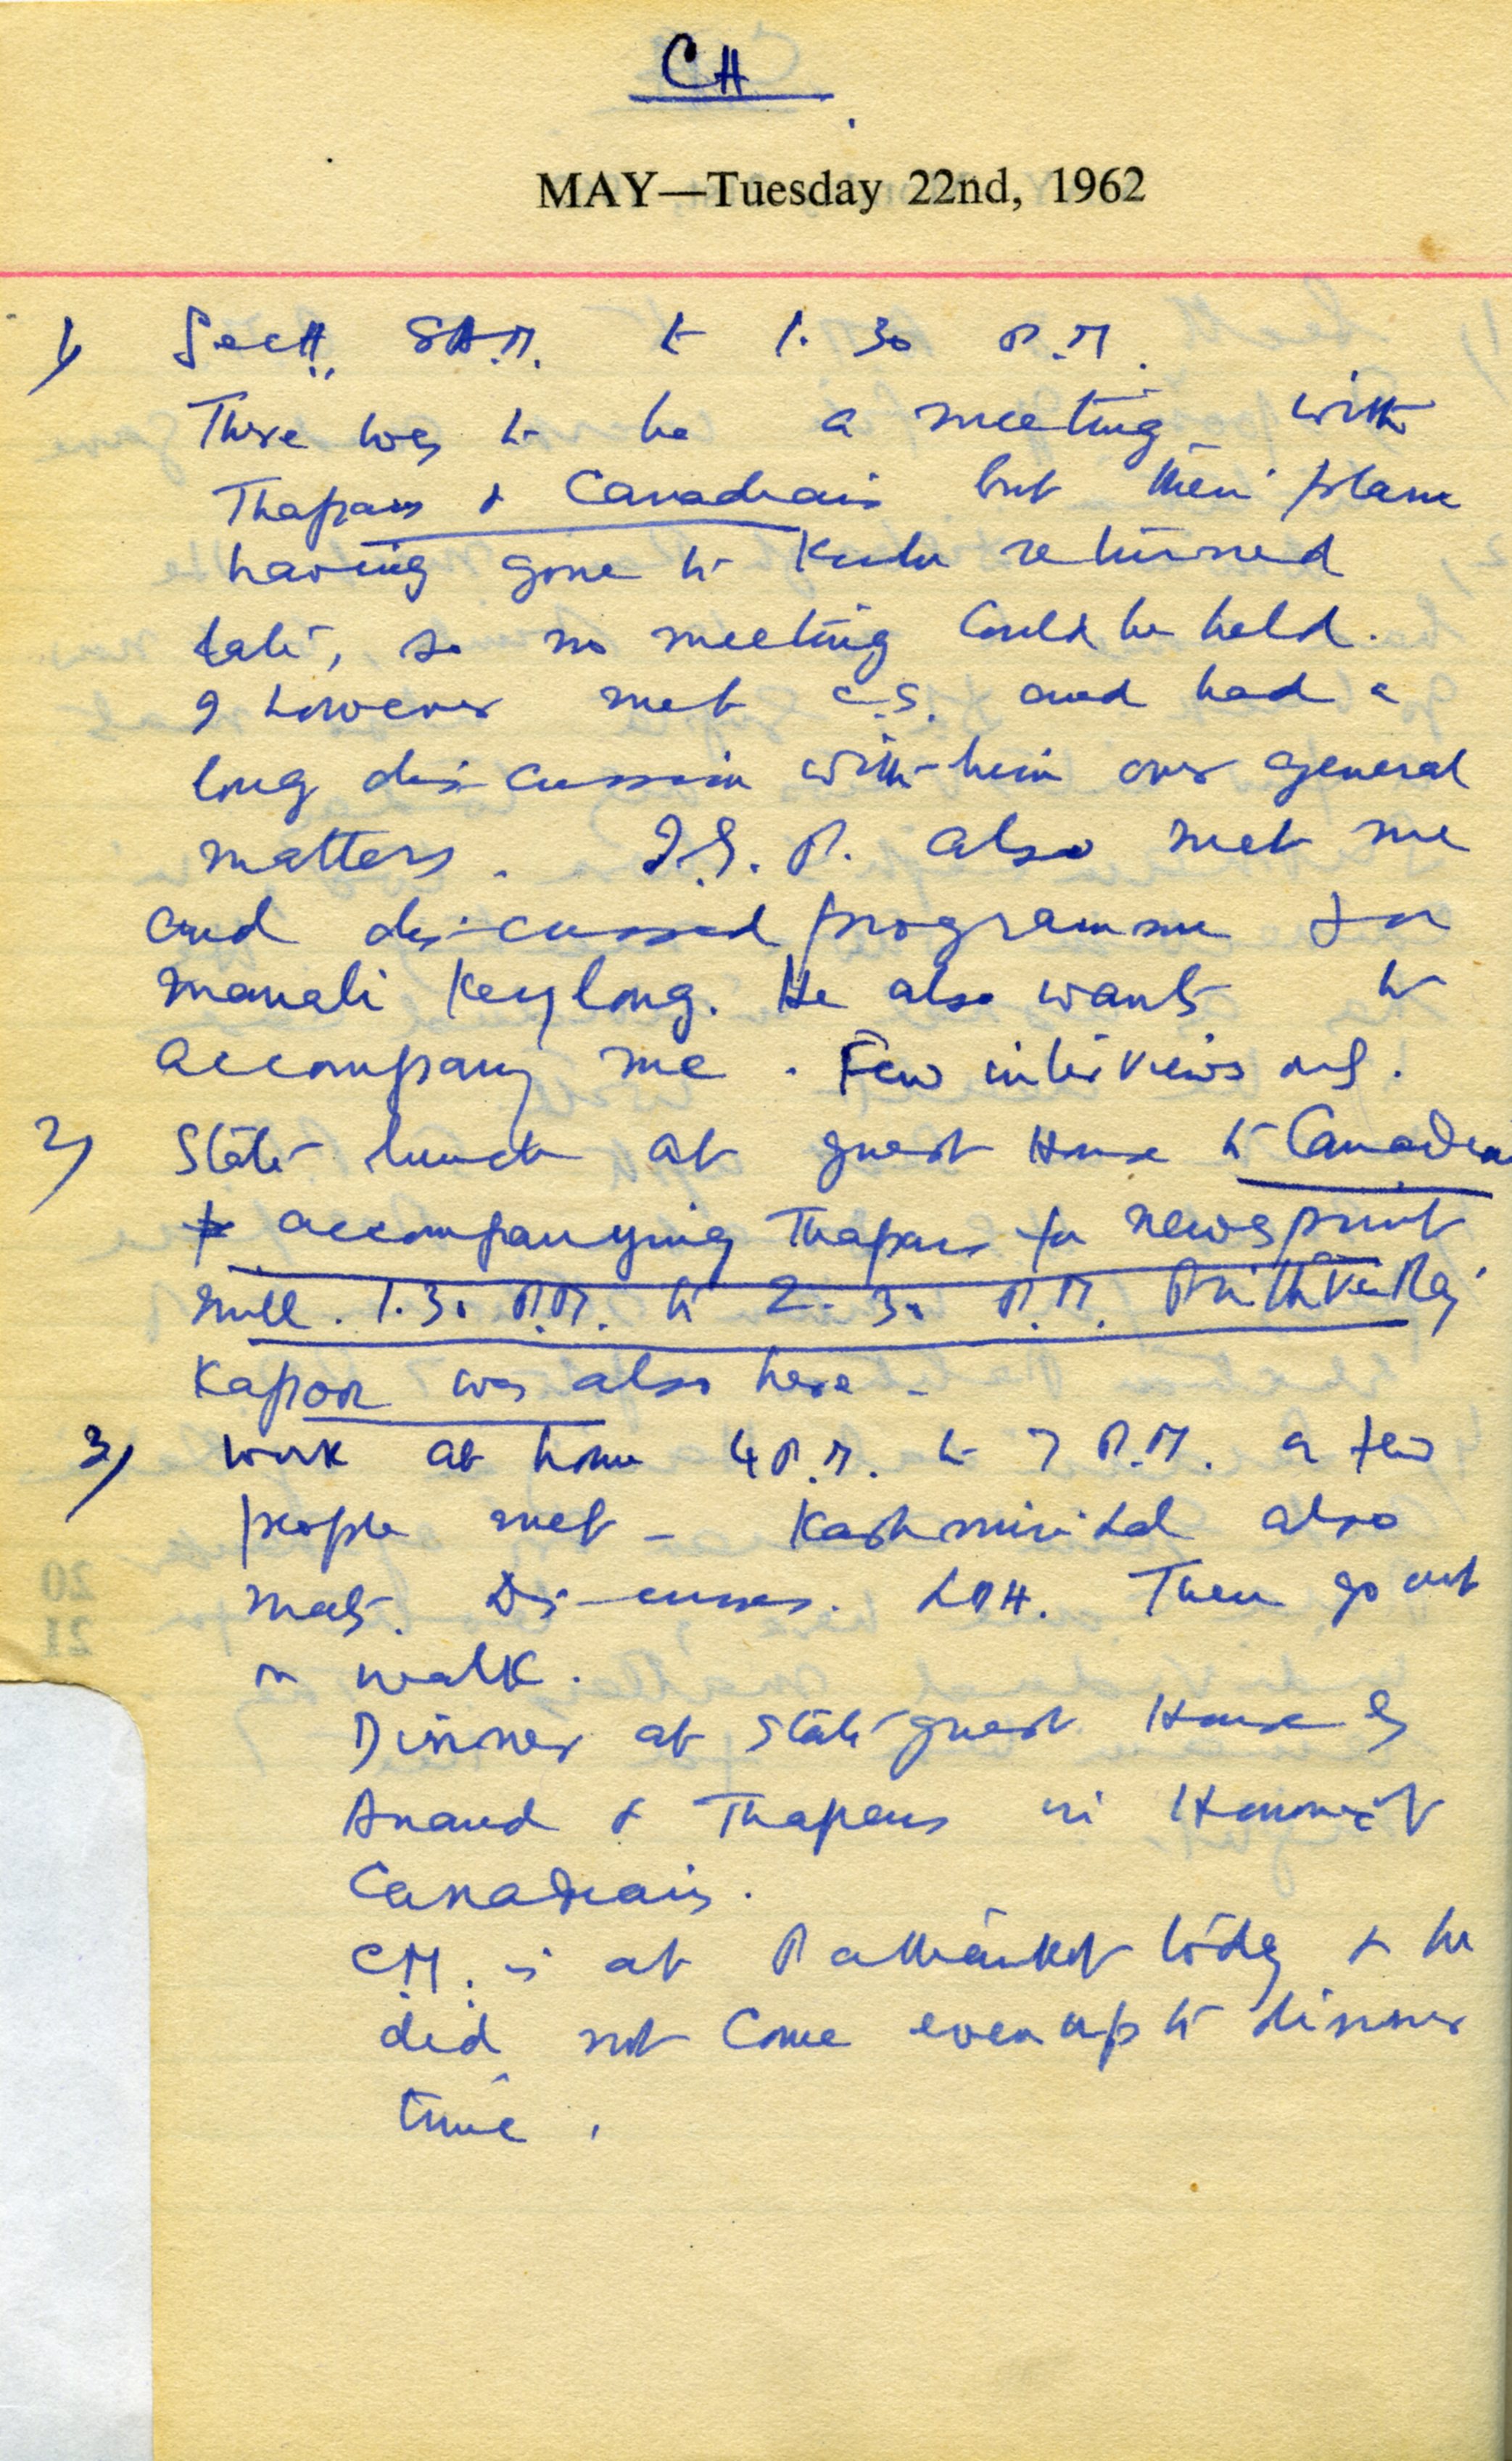 CH
MAY—Tuesday 22nd, 1962
1) Sectt. 8 A.M. to 1.30 P.M.
There was to be a meeting with
Thapars & Canadians but their plane
having gone to Kulu returned
late, so no meeting could be held.
I however met C.S. and had a
long discussion with him over general
matters. I.G.P. also met me
and discussed programme for
Manali Keylong. He also wants to
accompany me. Few interviews only.
2) State lunch at guest House to Canadian
accompanying Thapars for newsprint
mill. 1.30 P.M. to 2.30 P.M. Prithvi Raj
Kapoor was also here -
3) work at home 4 P.M. to 7 P.M. a few
people met - Kashmiri Lal also
met. Discusses. Then go out
on walk.
Dinner at State guest House by
Anand & Thapars in Honour of
Canadians.
C.M. is at Pathankot lodge & he
did not come even up to dinner
time.